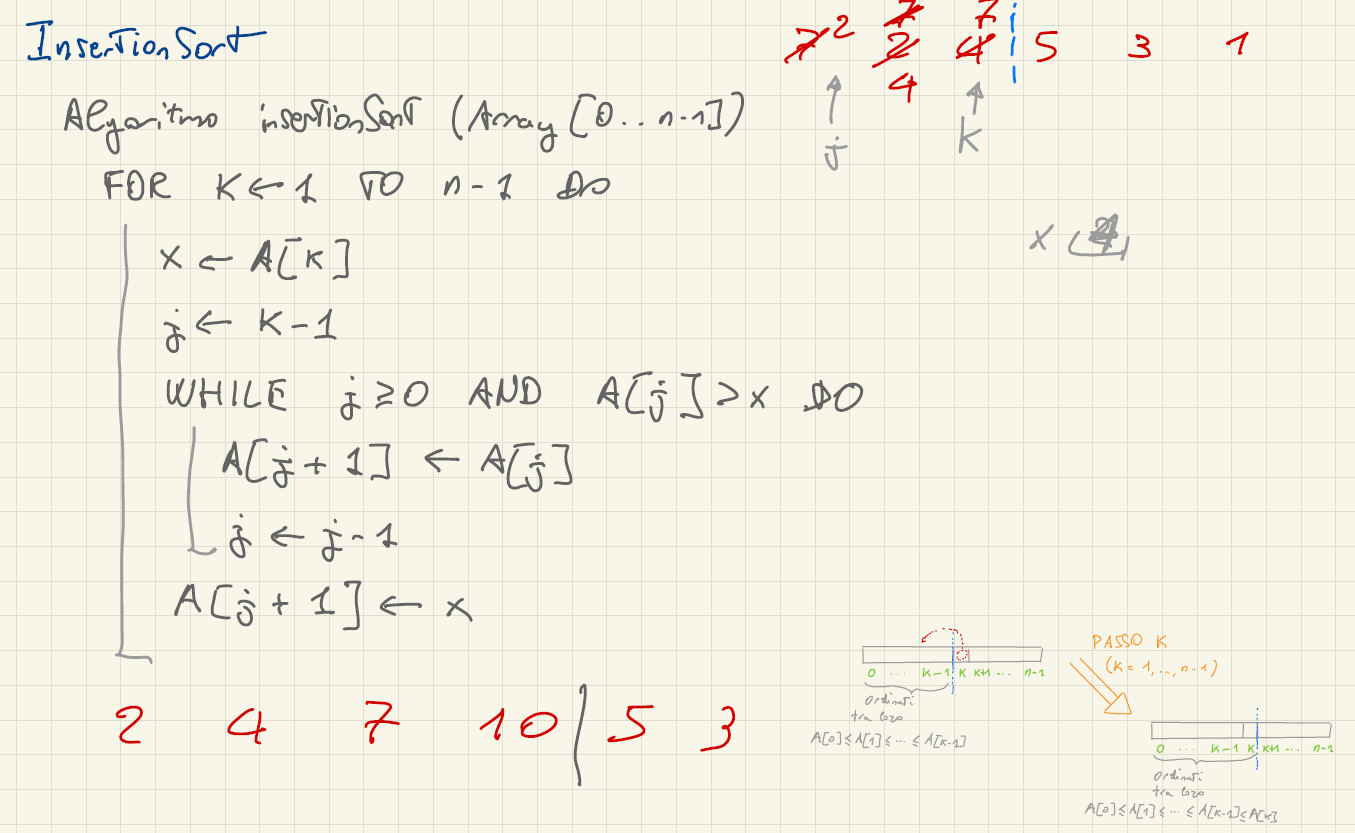 InsertionSort
7 2 7 2 4 7 4 5 3 1
j k
Algoritmo insertionSort (Array [0..n-1])
FOR K ← 1 TO n-1 DO
x ← A[K]
x
j ← K-1
WHILE j ≥ 0 AND A[j] > x DO
A[j + 1] ← A[j]
j ← j - 1
A[j + 1] ← x
2 4 7 10 5 3
0 ... K-1 K K+1 ... n-1
Ordinati
tra loro
A[0] ≤ A[1] ≤ ... ≤ A[K-1]
PASSO K
(K = 1, ..., n-1)
0 ... K-1 K K+1 ... n-1
Ordinati
tra loro
A[0] ≤ A[1] ≤ ... ≤ A[K-1] ≤ A[K]